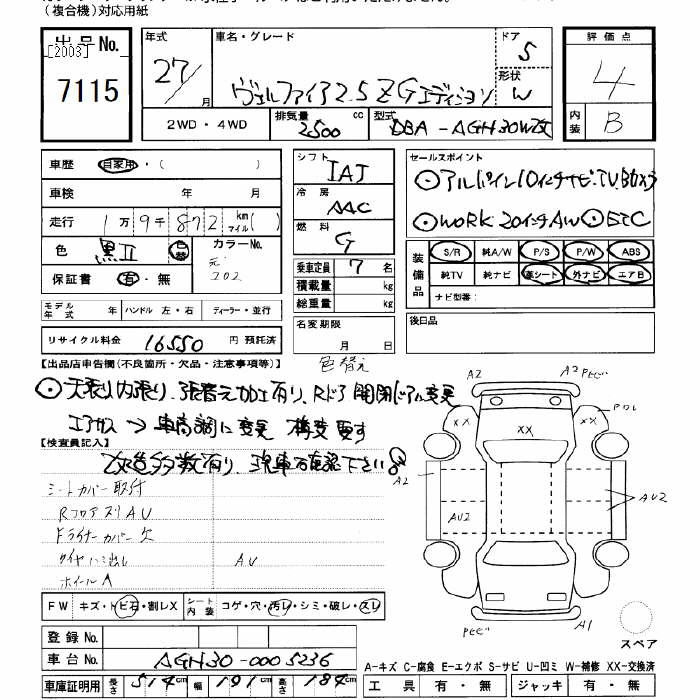 （複合機）対応用紙
出品 No.
[2003]
7115
年式
27/ 月
車名・グレード
ヴェルファイア2.5 ZGエディション
ドア
5
形状
W
評価点
4
内装
B
2WD ・ 4WD
排気量 cc
2500
型式
DBA-AGH30W改
車歴 自家用・( )
車検 年 月
走行 1万9千872 km マイル( )
色 黒II 色替
カラーNo.
元 202
保証書 有・無
モデル年式 年 ハンドル 左・右 ディーラー・並行
リサイクル料金 16550 円 預託済
シフト
IAT
冷房
AAC
燃料
G
乗車定員 7 名
積載量 kg
総重量 kg
名変期限
月 日
セールスポイント
⊙アルパイン10インチナビ.TVBカメラ
⊙WORK 20インチAW ⊙ETC
装備品
S/R 純A/W P/S P/W ABS
純TV 純ナビ 革シート 外ナビ エアB
ナビ型番：
後日品
色替え
【出品店申告欄（不良箇所・欠品・注意事項等）】
⊙天張り内張り.張替え加工有り、Rドア開閉ドアに変更
エアサス → 車高調に変更 構変要す
【検査員記入】
改造多数有り 現車確認下さい
シートカバー取付
RフロアズリAU
Fライナーカバー欠
タイヤハミ出し AU
ホイールA
FW キズ・トビ石・割レX シート内装 コゲ・穴・汚レ・シミ・破レ・スレ
登録 No.
車台 No. AGH30-0005236
車庫証明用 長さ 514 cm 幅 191 cm 高さ 184 cm
A2
A2 PヒビC
Pワレ
XX
XX
XX
A2
AU2
AU2
PヒビC
A1
スペア
A-キズ C-腐食 E-エクボ S-サビ U-凹ミ W-補修 XX-交換済
工具 有・無 ジャッキ 有・無